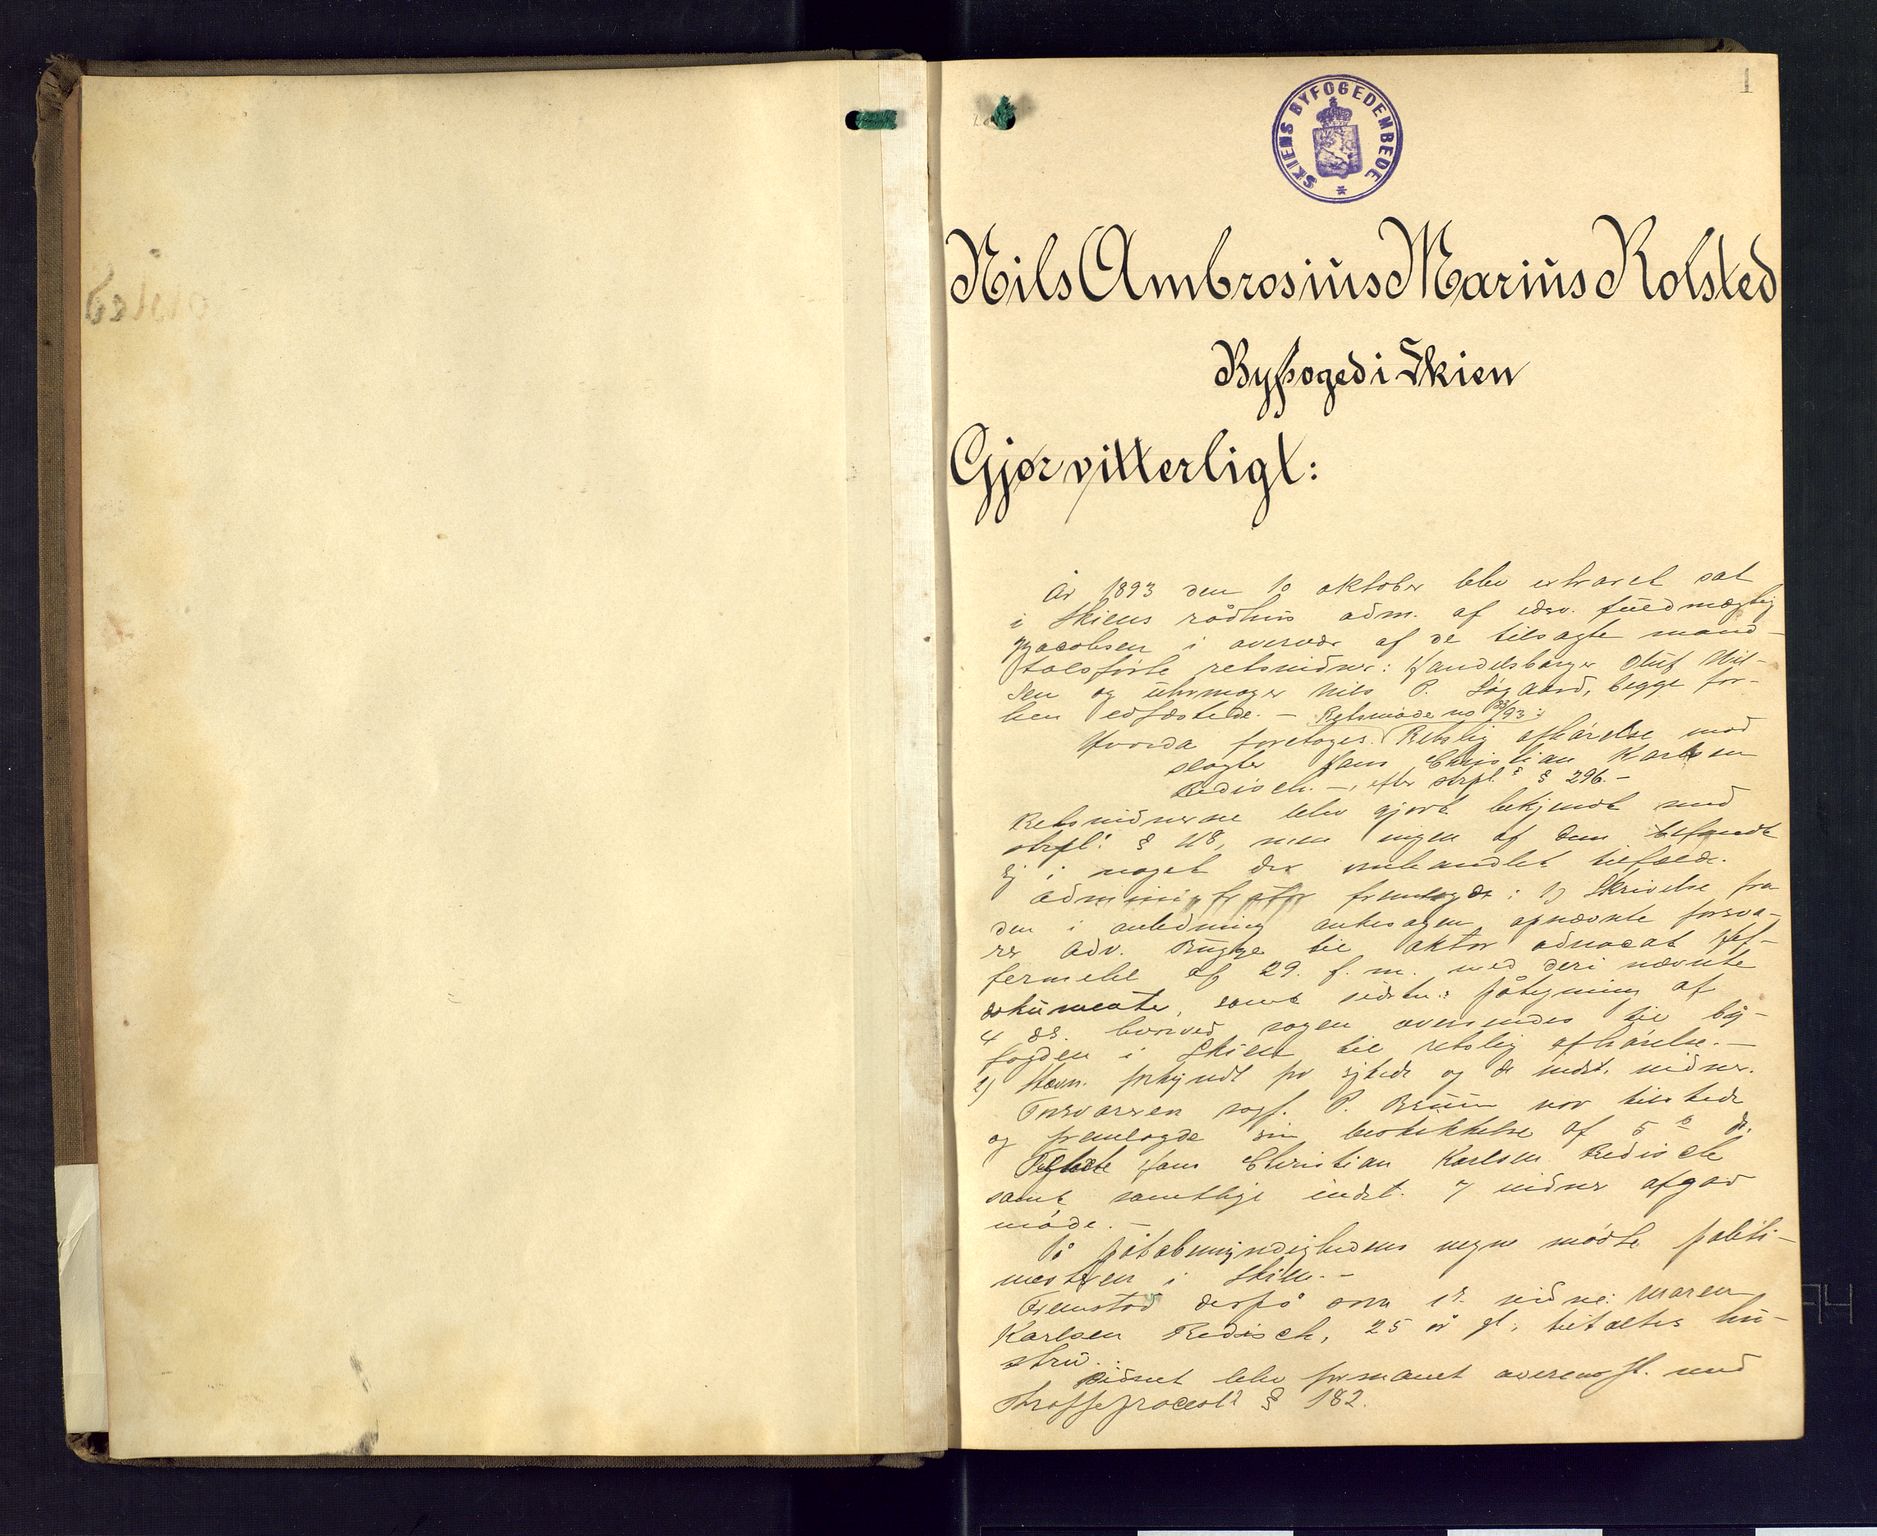 1
SKIENS BYFOGEDEMBEDE
Nils Ambrosius Marius Kolsted
Byfoged i Skien
Gjør vitterligt:
År 1893 den 10 oktober blev extraret sat
i Skiens rådhus adm. af edsv. fuldmægtig
Jacobsen i overvær af de tilsagte mand-
talsførte retsvidner: Handelsborger Oluf Nil-
sen og uhrmager Nils P. Søgaard, begge for-
hen edfæstede. — Retsmøde no 83/93:
Hvorda foretoges: Retslig afhørelse mod
slagter Hans Christian Karlsen
Redisch. —, efter strpl. § 296. —
Retsvidnerne blev gjort bekjendt med
strpl. § 118, men ingen af dem befandt
sig i noget der omhandlet tilfælde.
Administrator fremlagde: 1) Skrivelse fra
den i anledning ankesagen opnævnte forsva-
rer adv. Bugge til aktor advocat Hef-
fermehl af 29. f. m. med deri nævnte
dokumenter, samt sidstn.s påtegning af
4 ds. hvorved sagen oversendes til by-
fogden i Skien til retslig afhørelse. —
2) Stævn. forkyndt for sigtede og de indst. vidner.
Forsvareren sagf. P. Bruun var tilstede
og fremlagde sin beskikkelse af 5 ds.
Tiltalte Hans Christian Karlsen Redisch
samt samtlige indst. 7 vidner afgav
møde. —
På påtalemyndighedens vegne mødte politi-
mesteren i Skien. —
Fremstod derpå som 1st. vidne: Maren
Karlsen Redisch, 25 år gl., tiltaltes hu-
stru.
Vidnet blev formanet overensst. med
Straffeprocesl. § 182.